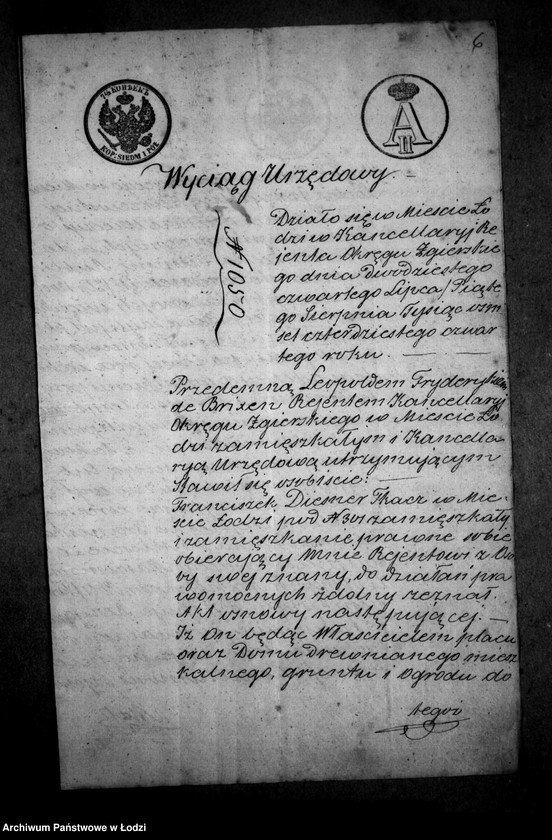 6
7½ КОПѢЕКЪ
KOP: SIEDM I PÓŁ
A
II
Wyciąg Urzędowy. -
N 1050
Działo się w Mieście Ło
dzi w Kancellaryj Re
jenta Okręgu Zgierskie
go dnia dwudziestego
czwartego Lipca / Piąte
go Sierpnia Tysiąc ośm
set czterdziestego czwar
tego roku.
Przedemną Leopoldem Fryderykiem
de Brixen Rejentem Kancellaryj
Okręgu Zgierskiego w Mieście Ło
dzi zamieszkałym i Kancella-
ryą Urzędową utrzymującym
Stawił się osobiście: -
Franciszek Diesner Tkacz w Mie-
ście Łodzi pod N 301 zamieszkały
i zamieszkanie prawne sobie
obierający Mnie Rejentowi z Oso
by swej znany, do działań pra
womocnych zdolny zeznał
Akt osnowy następującej. -
Iż on będąc Właścicielem placu
oraz Domu drewnianego miesz
kalnego, gruntu i ogrodu do
tegoż
Archiwum Państwowe w Łodzi